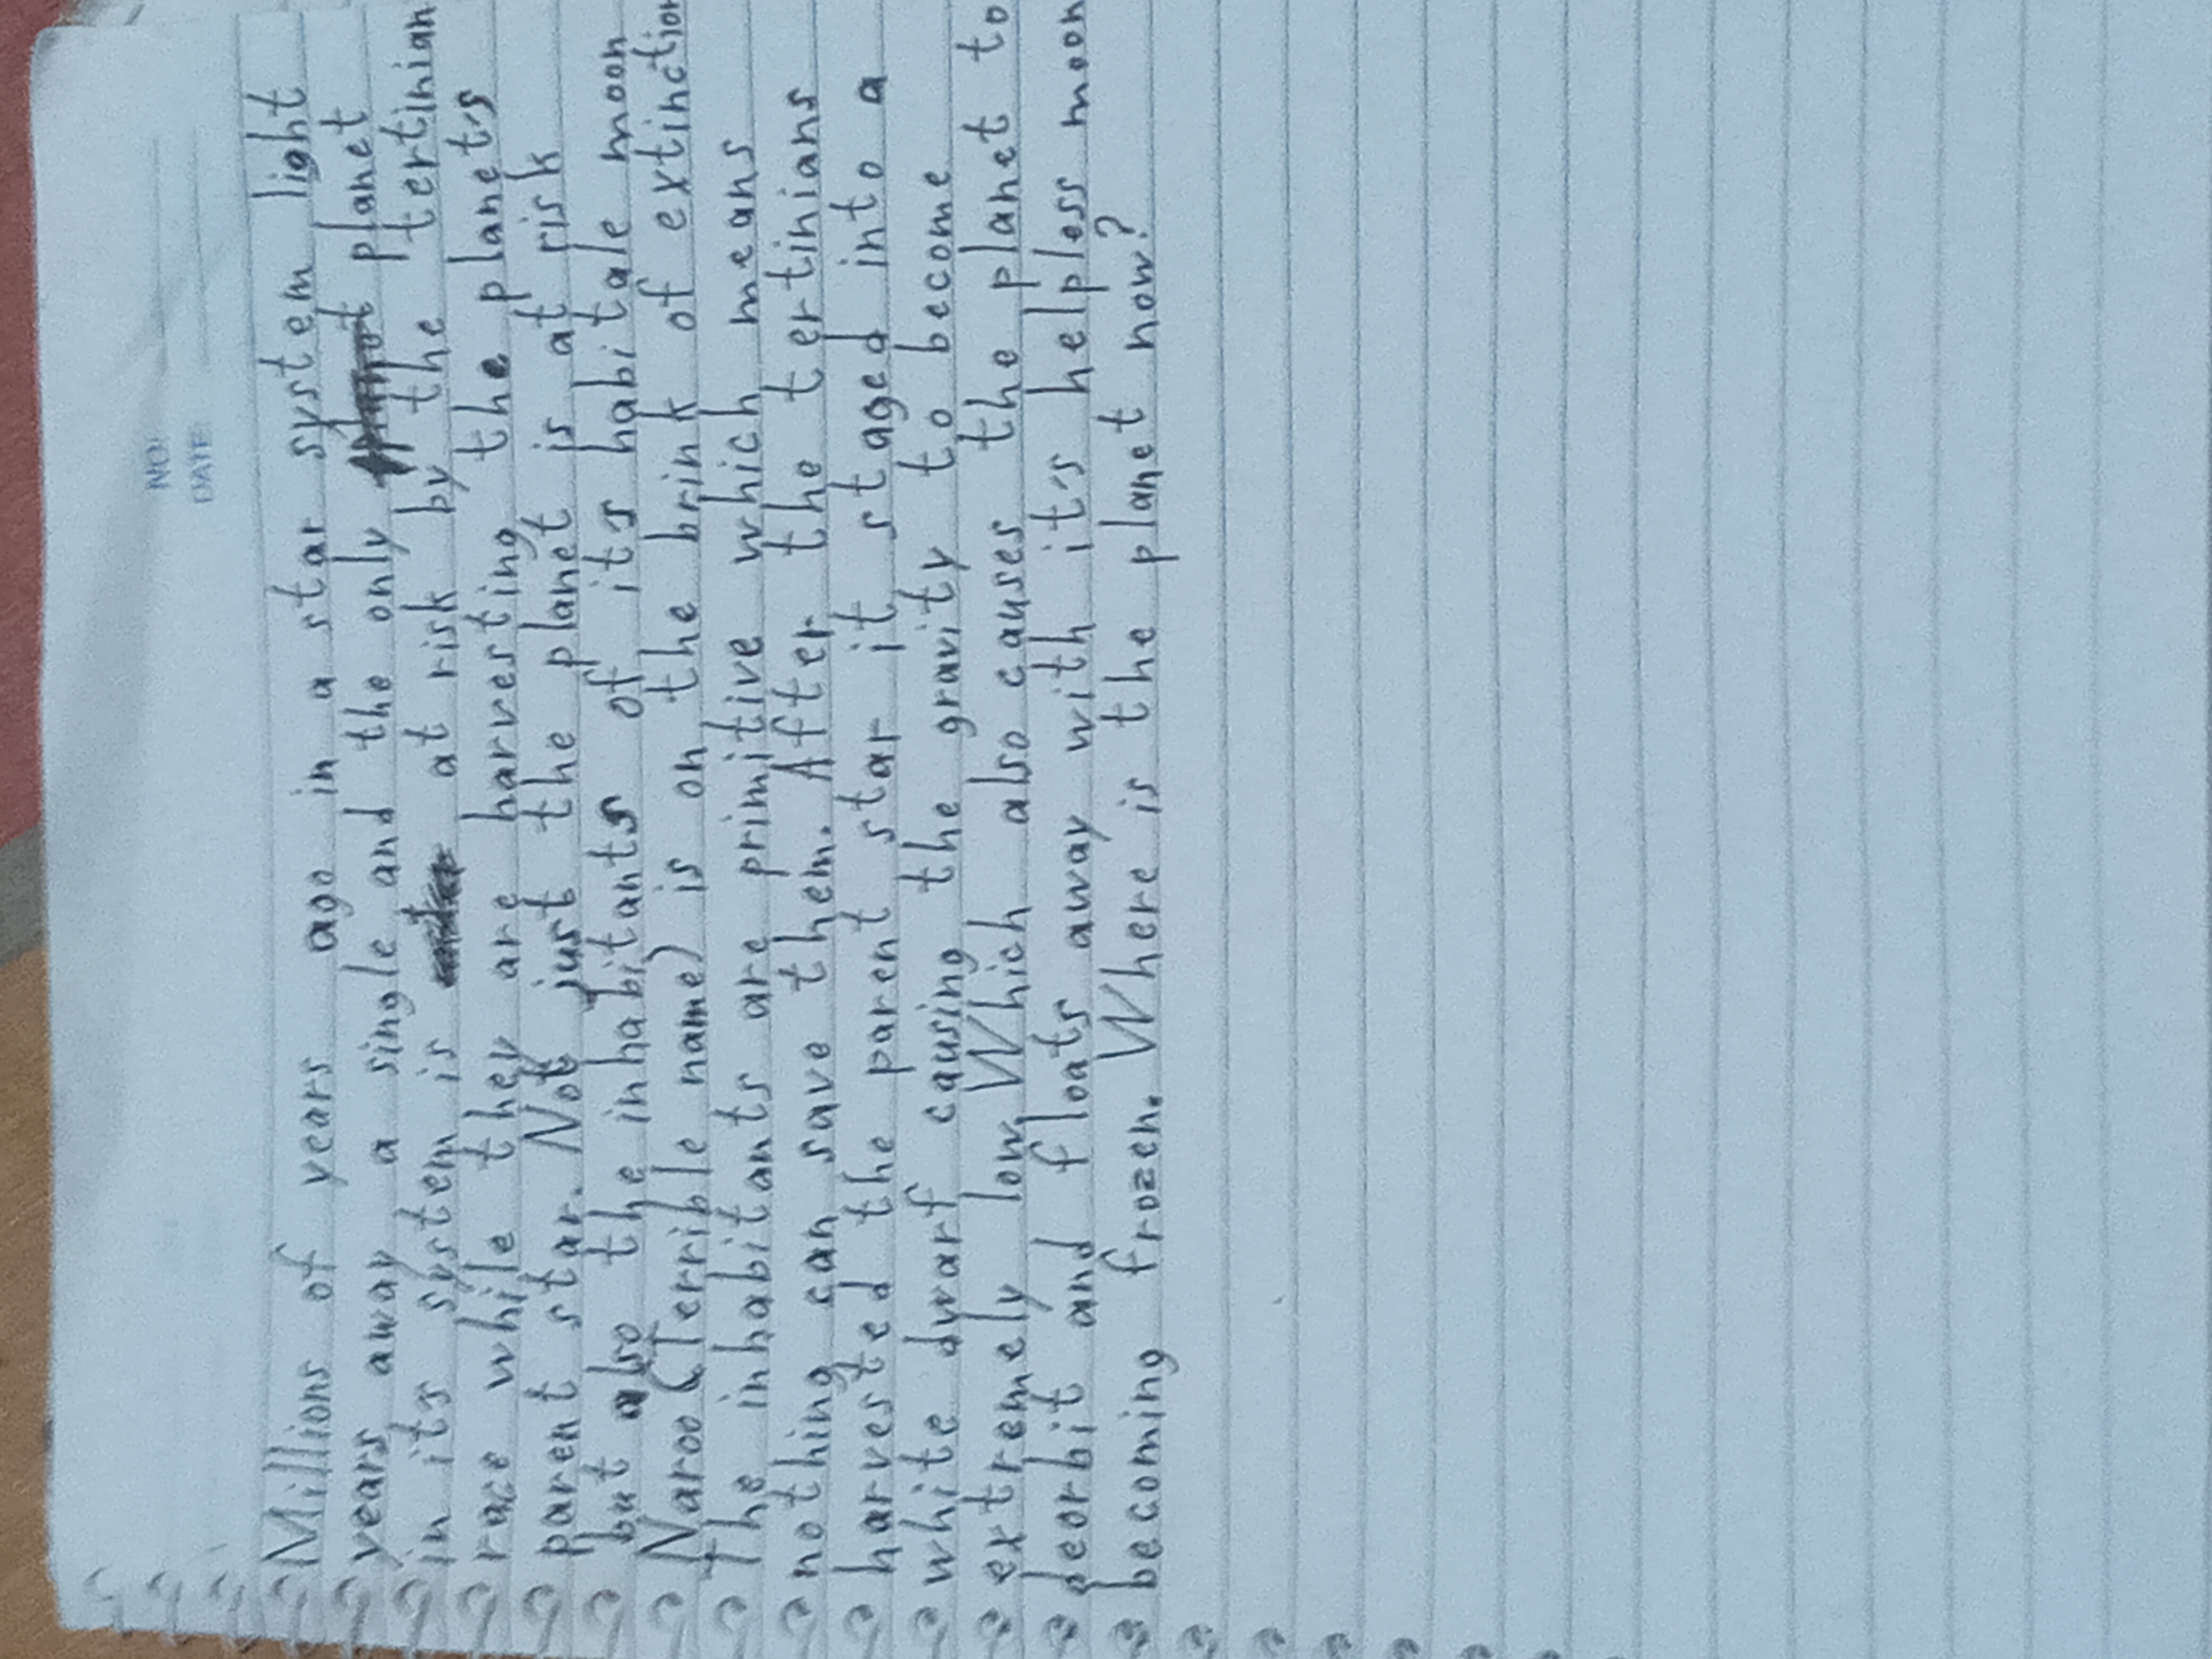 NO:
DATE:
Millions of years ago in a star system light
years away a single and the only planet
in its system is at risk by the tertinian
race while they are harvesting the planet's
parent star. Not just the planet is at risk
but also the inhabitants of its habitale moon
Naroo (Terrible name) is on the brink of extinction
the inhabitants are primitive which means
nothing can save them. After the tertinians
harvested the parent star it staged into a
white dwarf causing the gravity to become
extremely low. Which also causes the planet to
deorbit and floats away with it's helpless moon
becoming frozen. Where is the planet now?